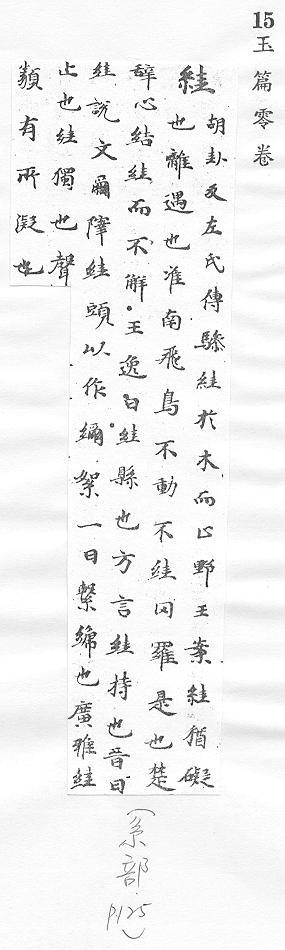 15 玉篇零卷
絓
胡卦反左氏傳驂絓於木而止野王案絓猶礙
也離遇也淮南飛鳥不動不絓羅是也楚
辞心結絓而不解王逸曰絓縣也方言絓持也音曰
絓說文爾滓絓頭以作絮一曰繫綿也廣雅絓
止也絓獨也聲
類有所凝也
(糸部 p125)